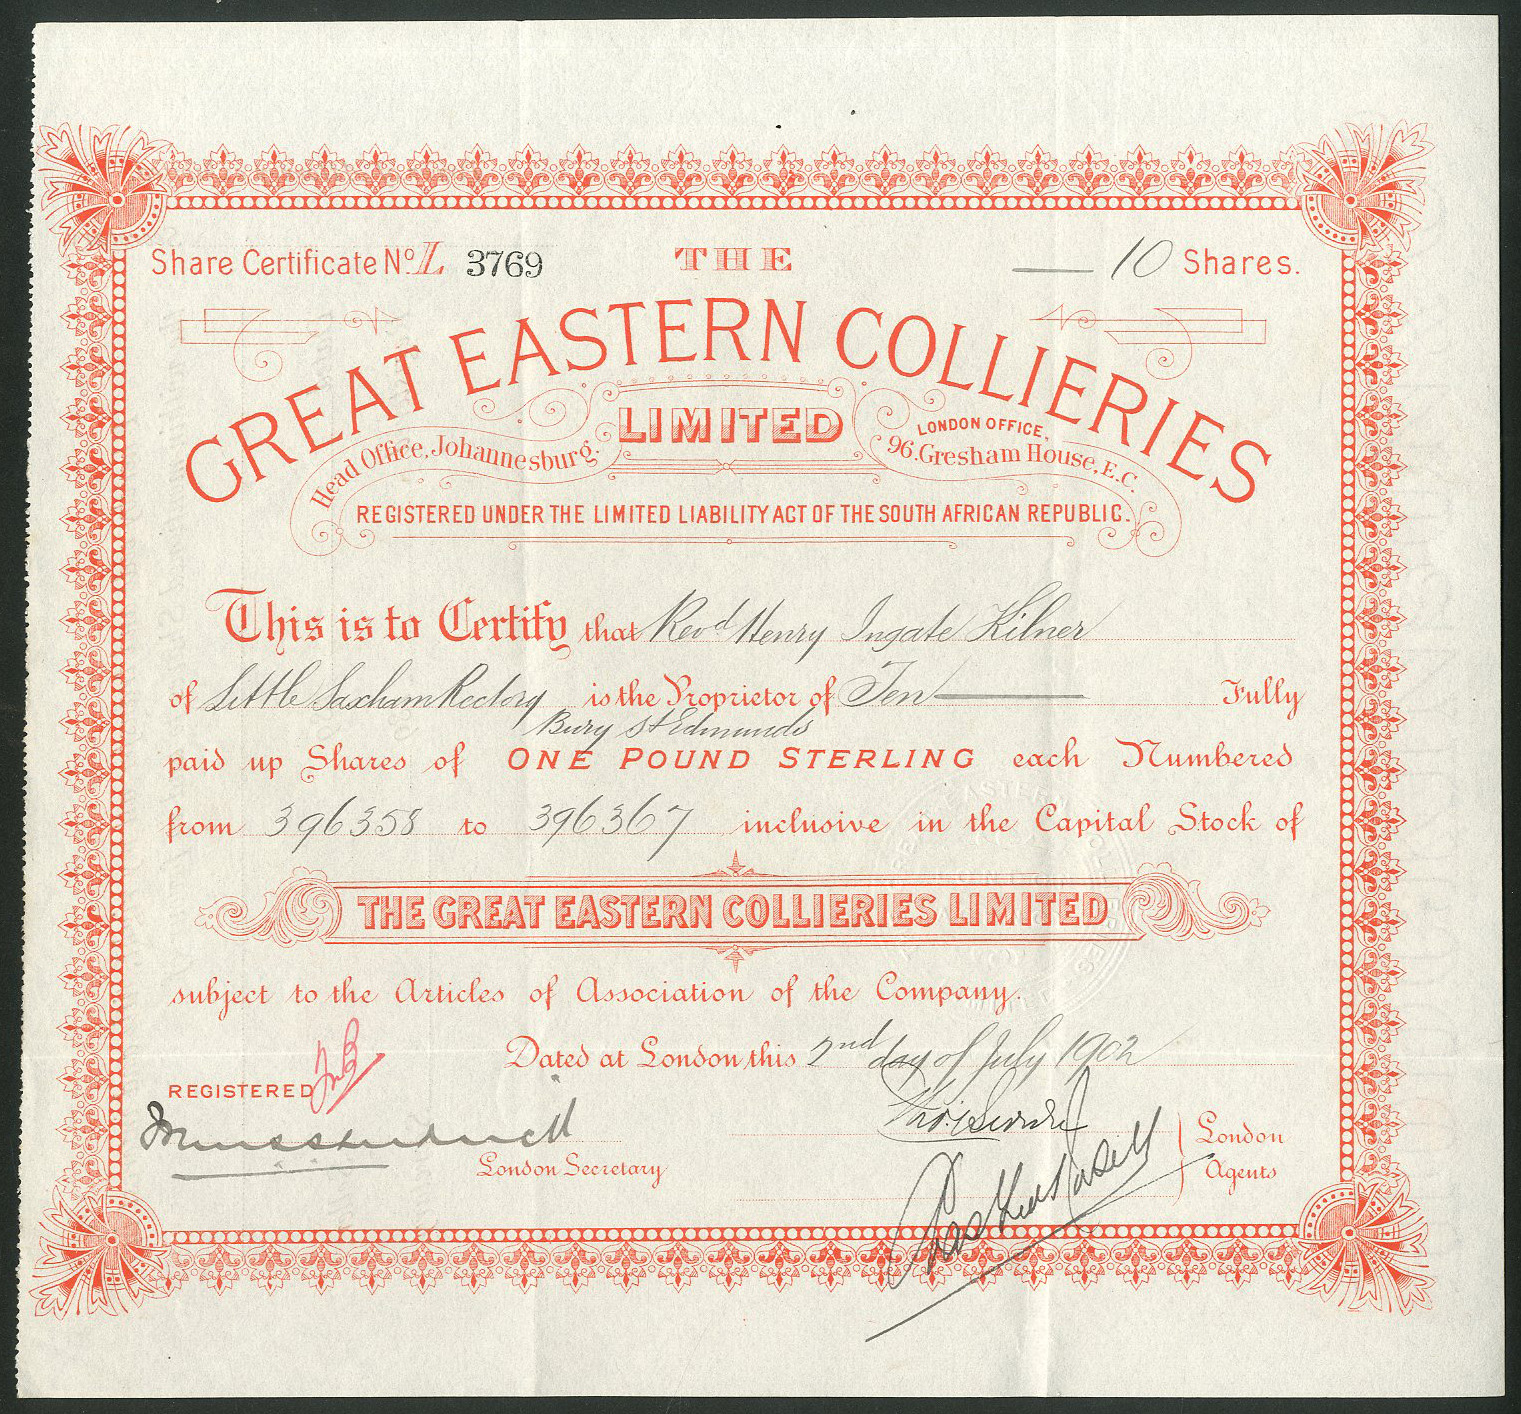 Share Certificate No. L 3769
THE
10 Shares.
GREAT EASTERN COLLIERIES
LIMITED
Head Office, Johannesburg.
LONDON OFFICE,
96. Gresham House, E.C.
REGISTERED UNDER THE LIMITED LIABILITY ACT OF THE SOUTH AFRICAN REPUBLIC.
This is to Certify that Revd Henry Ingate Kilner
of Little Saxham Rectory is the Proprietor of Ten Fully
Bury St Edmunds
paid up Shares of ONE POUND STERLING each Numbered
from 396358 to 396367 inclusive in the Capital Stock of
THE GREAT EASTERN COLLIERIES LIMITED
subject to the Articles of Association of the Company.
Dated at London this 2nd day of July 1902
REGISTERED
London Secretary
London
Agents